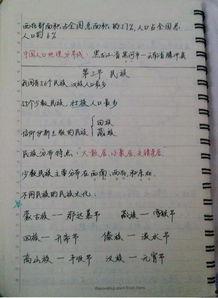 西部面积占全国总面积的57%,人口占全国总
人口的6%
中国人口地理分界线:黑龙江省黑河市—云南省腾冲县
第二节 民族
我国有56个民族 汉族人数最多
55个少数民族,壮族人口最多
信仰伊斯兰教的民族 回族
藏族
民族分布特点:大散居,小聚居,交错杂居
少数民族主要分布在西南、西北和东北
不同民族的民族文化:
蒙古族—那达慕节 藏族—雪顿节
回族—开斋节 傣族—泼水节
高山族—丰收节 汉族—元宵节